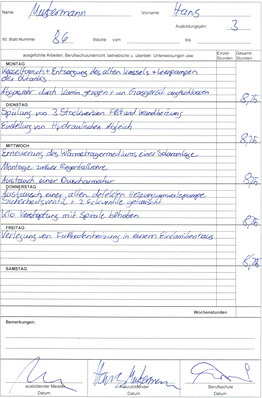 Name: Mustermann Vorname: Hans
Ausbildungsjahr: 3
Nr. Blatt Nummer: 86 Woche vom: bis zum:
ausgeführte Arbeiten, Berufsschulunterricht, betriebliche u. überbetr. Unterweisungen usw. Einzel Stunden Gesamt Stunden
MONTAG
Kesseltausch + Entsorgung des alten Kessels + Leerpumpen
des Öltanks
Abgasrohr durch Kamin gezogen + an Gasgerät angeschlossen 8,25
DIENSTAG
Spülung von 3 Stockwerken FBH und Wandheizung
Einstellung von Hydraulischen Abgleich 8,25
MITTWOCH
Erneuerung des Wärmeträgermediums einer Solaranlage
Montage zweier Regenfallrohre
Austausch einer Duscharmatur 8,25
DONNERSTAG
Austausch einer alten defekten Heizungsumwälzpumpe
Sicherheitsventil + 2 Eckventile getauscht
Klo Verstopfung mit Spirale behoben 8,25
FREITAG
Verlegung von Fußbodenheizung in einem Einfamilienhaus
8,25
SAMSTAG
Wochenstunden
Bemerkungen:
Hans Mustermann
ausbildender Meister Auszubildender Berufsschule
Datum Datum Datum